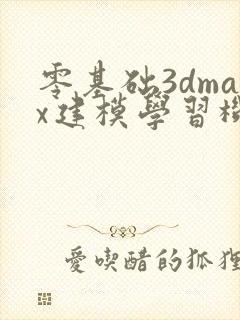 零基础3dma
x建模學習機
愛喫醋的狐狸